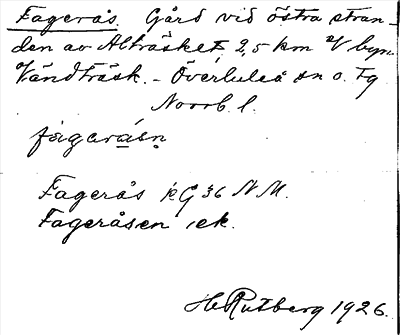 Fagerås. Gård vid östra stran-
den av Alträsket 2,5 km V byn
Vändträsk. - Överluleå sn o. Tg
Norrb. l.
fágarásn
Fagerås kG 36 N M.
Fageråsen ek.
H Rutberg 1926.